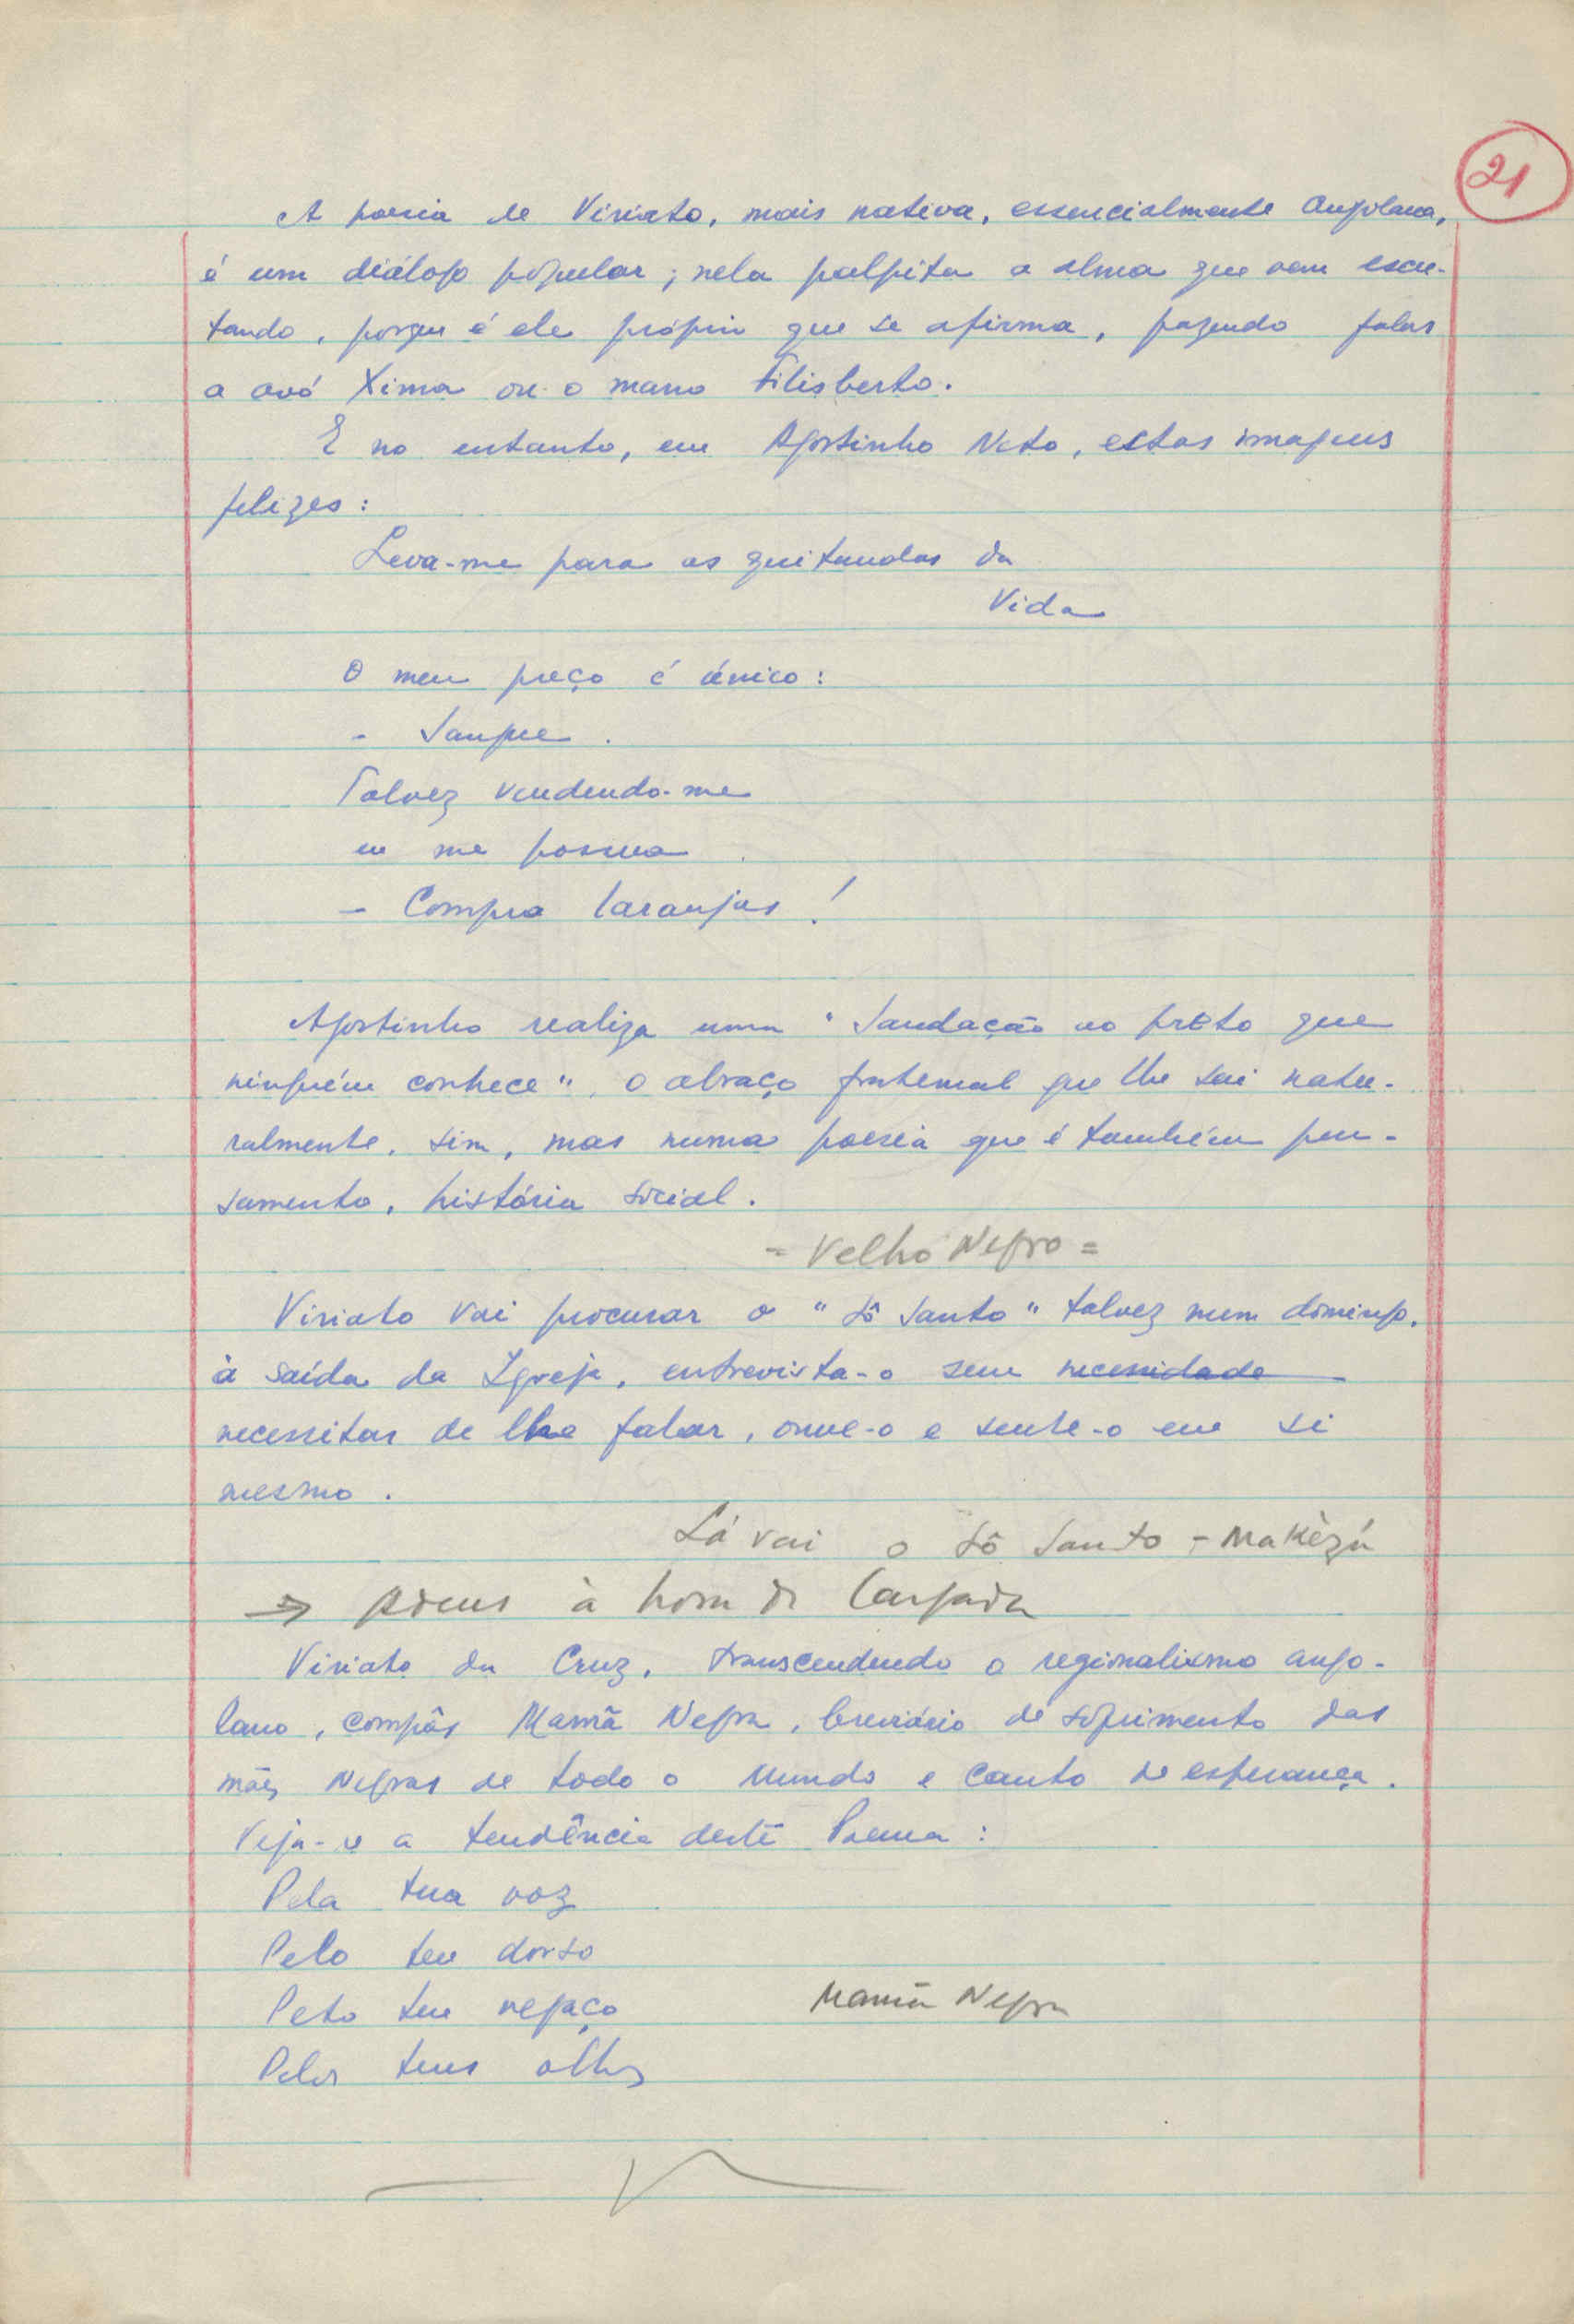 21
A poesia de Viriato, mais nativa, essencialmente Angolana,
é um diálogo popular; nela palpita a alma que vem escu-
tando, porque é ele próprio que se afirma, fazendo falar
a avó Xima ou o mano Filisberto.
E no entanto, em Agostinho Neto, estas imagens
felizes:
Leva-me para as quitandas da
Vida
O meu preço é único:
- Sangue.
Talvez vendendo-me
eu me possua
- Compra laranjas!
Agostinho realiza uma "Saudação ao preto que
ninguém conhece", o abraço fraternal que lhe sai natu-
ralmente, sim, mas numa poesia que é também pen-
samento, história social.
= Velho Negro =
Viriato vai procurar o "Sô Santo" talvez num domingo,
à saída da Igreja, entrevista-o sem necessidade
necessitar de lhe falar, ouve-o e sente-o em si
mesmo.
Lá vai o Sô Santo - Makèzú
→ Adeus à hora da Largada
Viriato da Cruz, transcendendo o regionalismo ango-
lano, compôs Mamã Negra, breviário de sofrimento das
mães Negras de todo o Mundo e Canto de esperança.
Veja-se a tendência deste Poema:
Pela tua voz
Pelo teu dorso
Pelo teu regaço
Mamã Negra
Pelos teus olhos